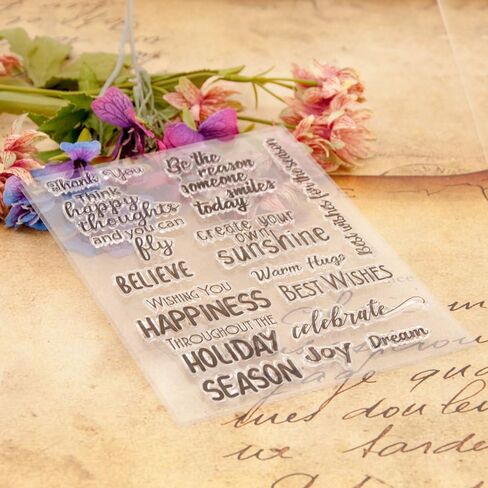 Thank You
Think
happy
thoughts
and you can
fly
Be the
reason
someone
smiles
today
Best wishes for the season
create your
own
sunshine
BELIEVE
Warm Hugs
WISHING YOU
HAPPINESS
THROUGHOUT THE
HOLIDAY
SEASON
BEST WISHES
celebrate
Joy
Dream
page